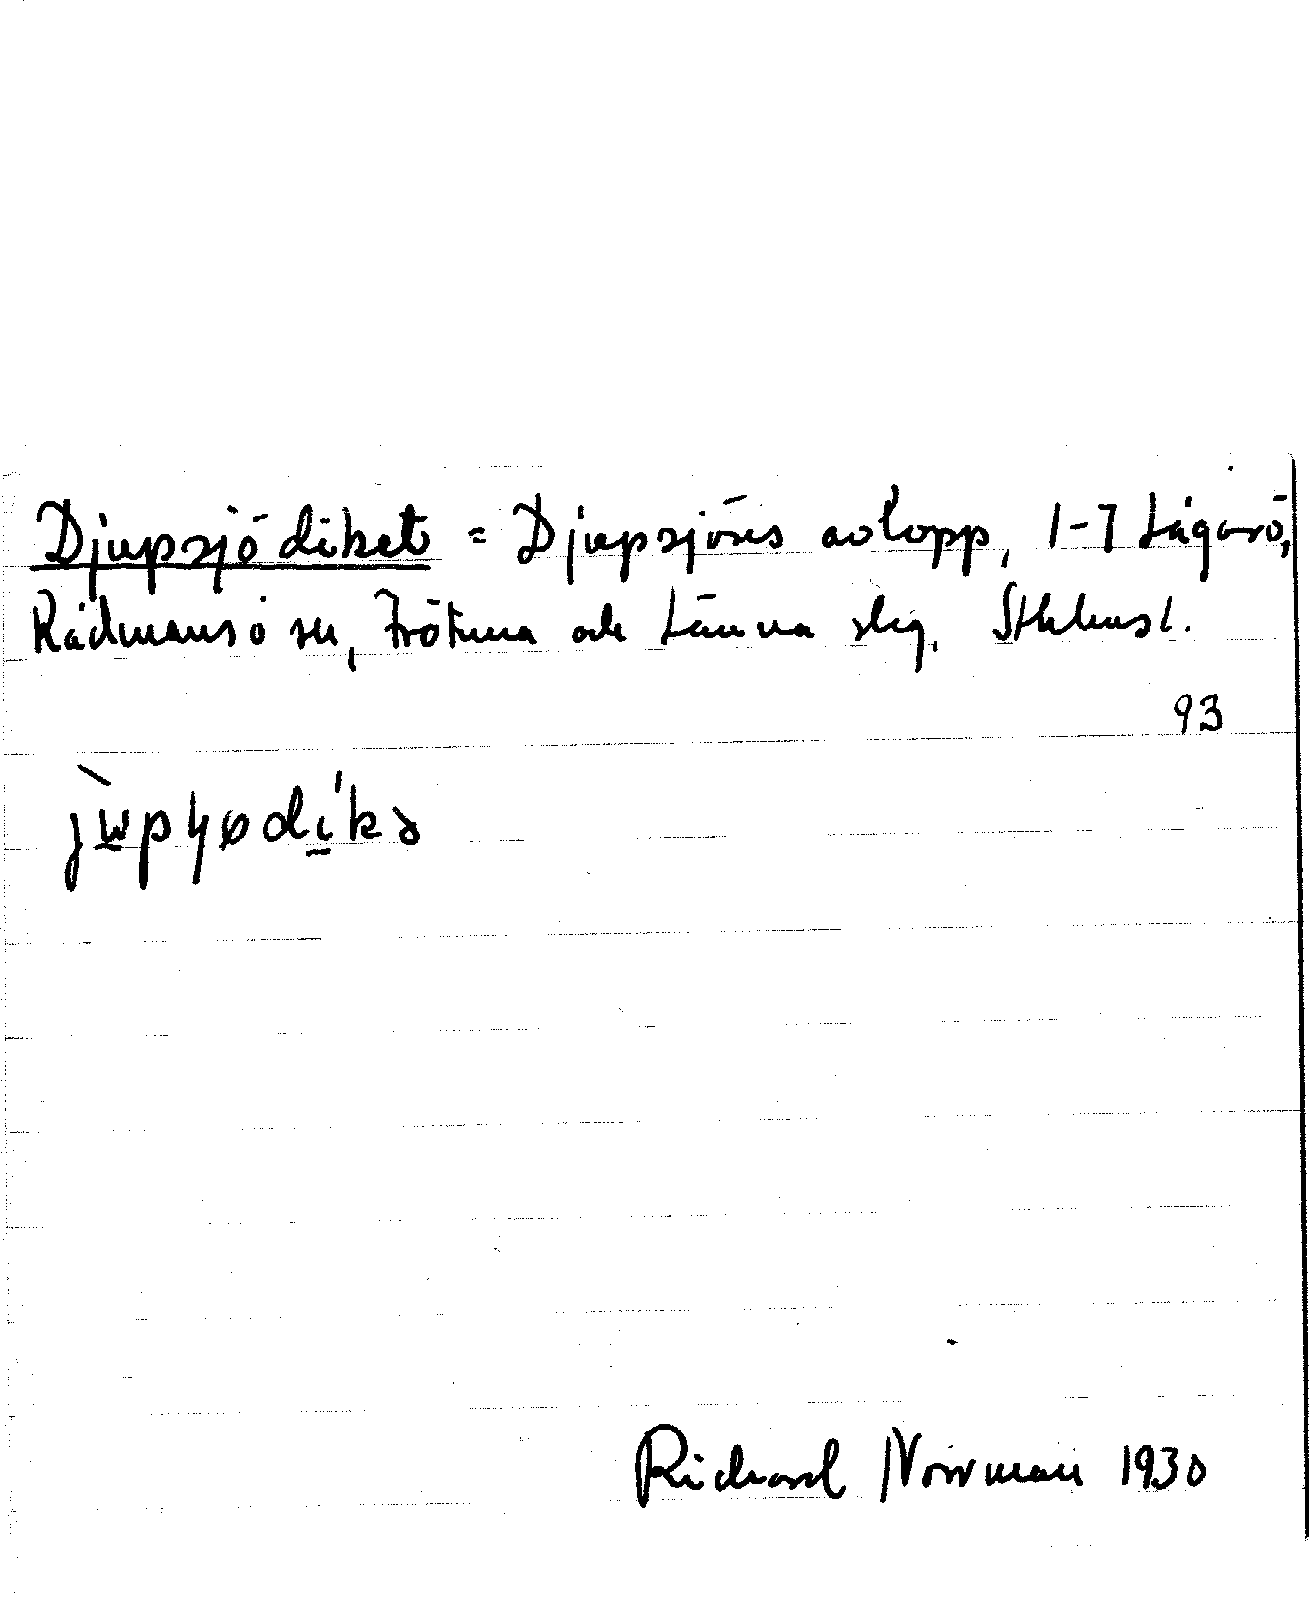 Djupsjödiket = Djupsjöns avlopp, 1-7 Lågarö,
Rådmansö sn, Frötuna och Länna slg. Sthlms l.
93
jùpɧødíkə
Richard Norrman 1930